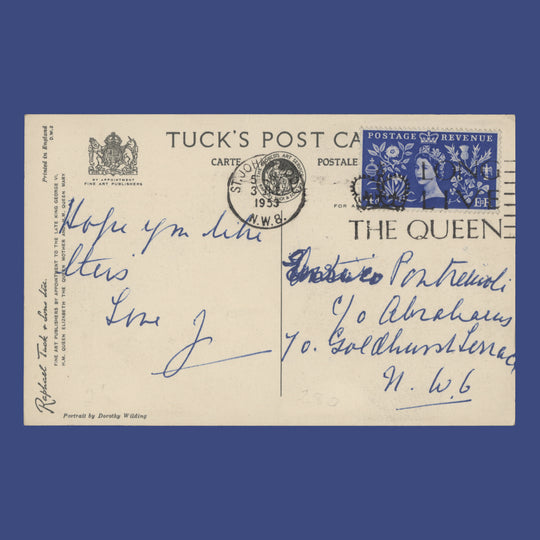 TUCK'S POST CA
CARTE POSTALE
BY APPOINTMENT
FINE ART PUBLISHERS
FOR A
POSTAGE REVENUE
ST. JOH
3
1953
N.W.8.
LONG
LIVE
THE QUEEN
Hope you like
this
Love J
Pontremoli
c/o Abrahams
70. Goldhurst Terrace
N.W.6
Printed in England
Raphael Tuck & Sons Ltd.
FINE ART PUBLISHERS BY APPOINTMENT TO THE LATE KING GEORGE VI,
H.M. QUEEN ELIZABETH THE QUEEN MOTHER AND H.M. QUEEN MARY
Portrait by Dorothy Wilding